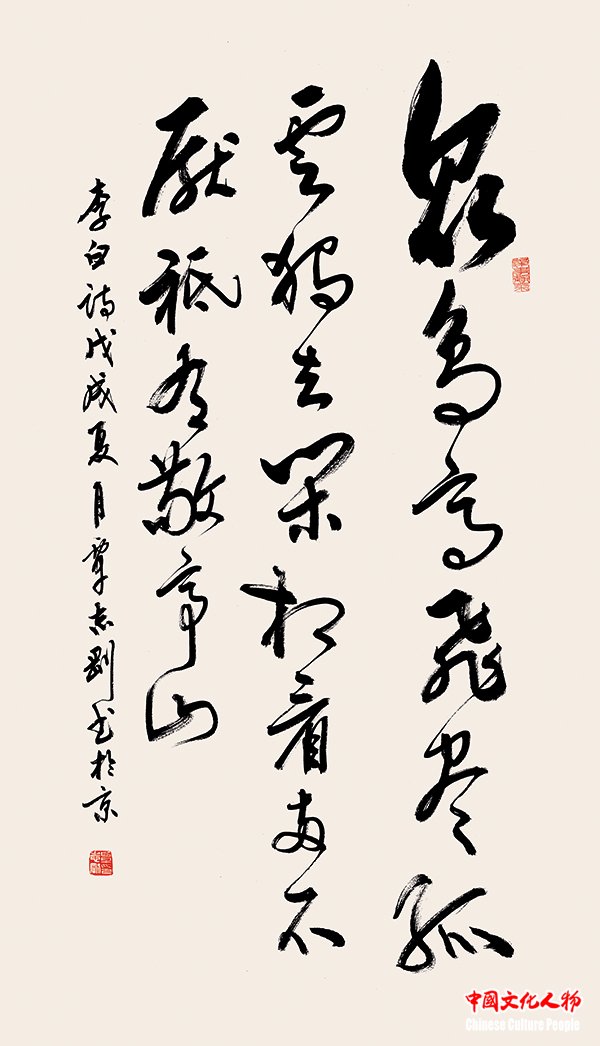 众鸟高飞尽孤
云独去闲相看两不
厌祇有敬亭山
李白诗戊戌夏月覃志刚书于京
中國文化人物
Chinese Culture People